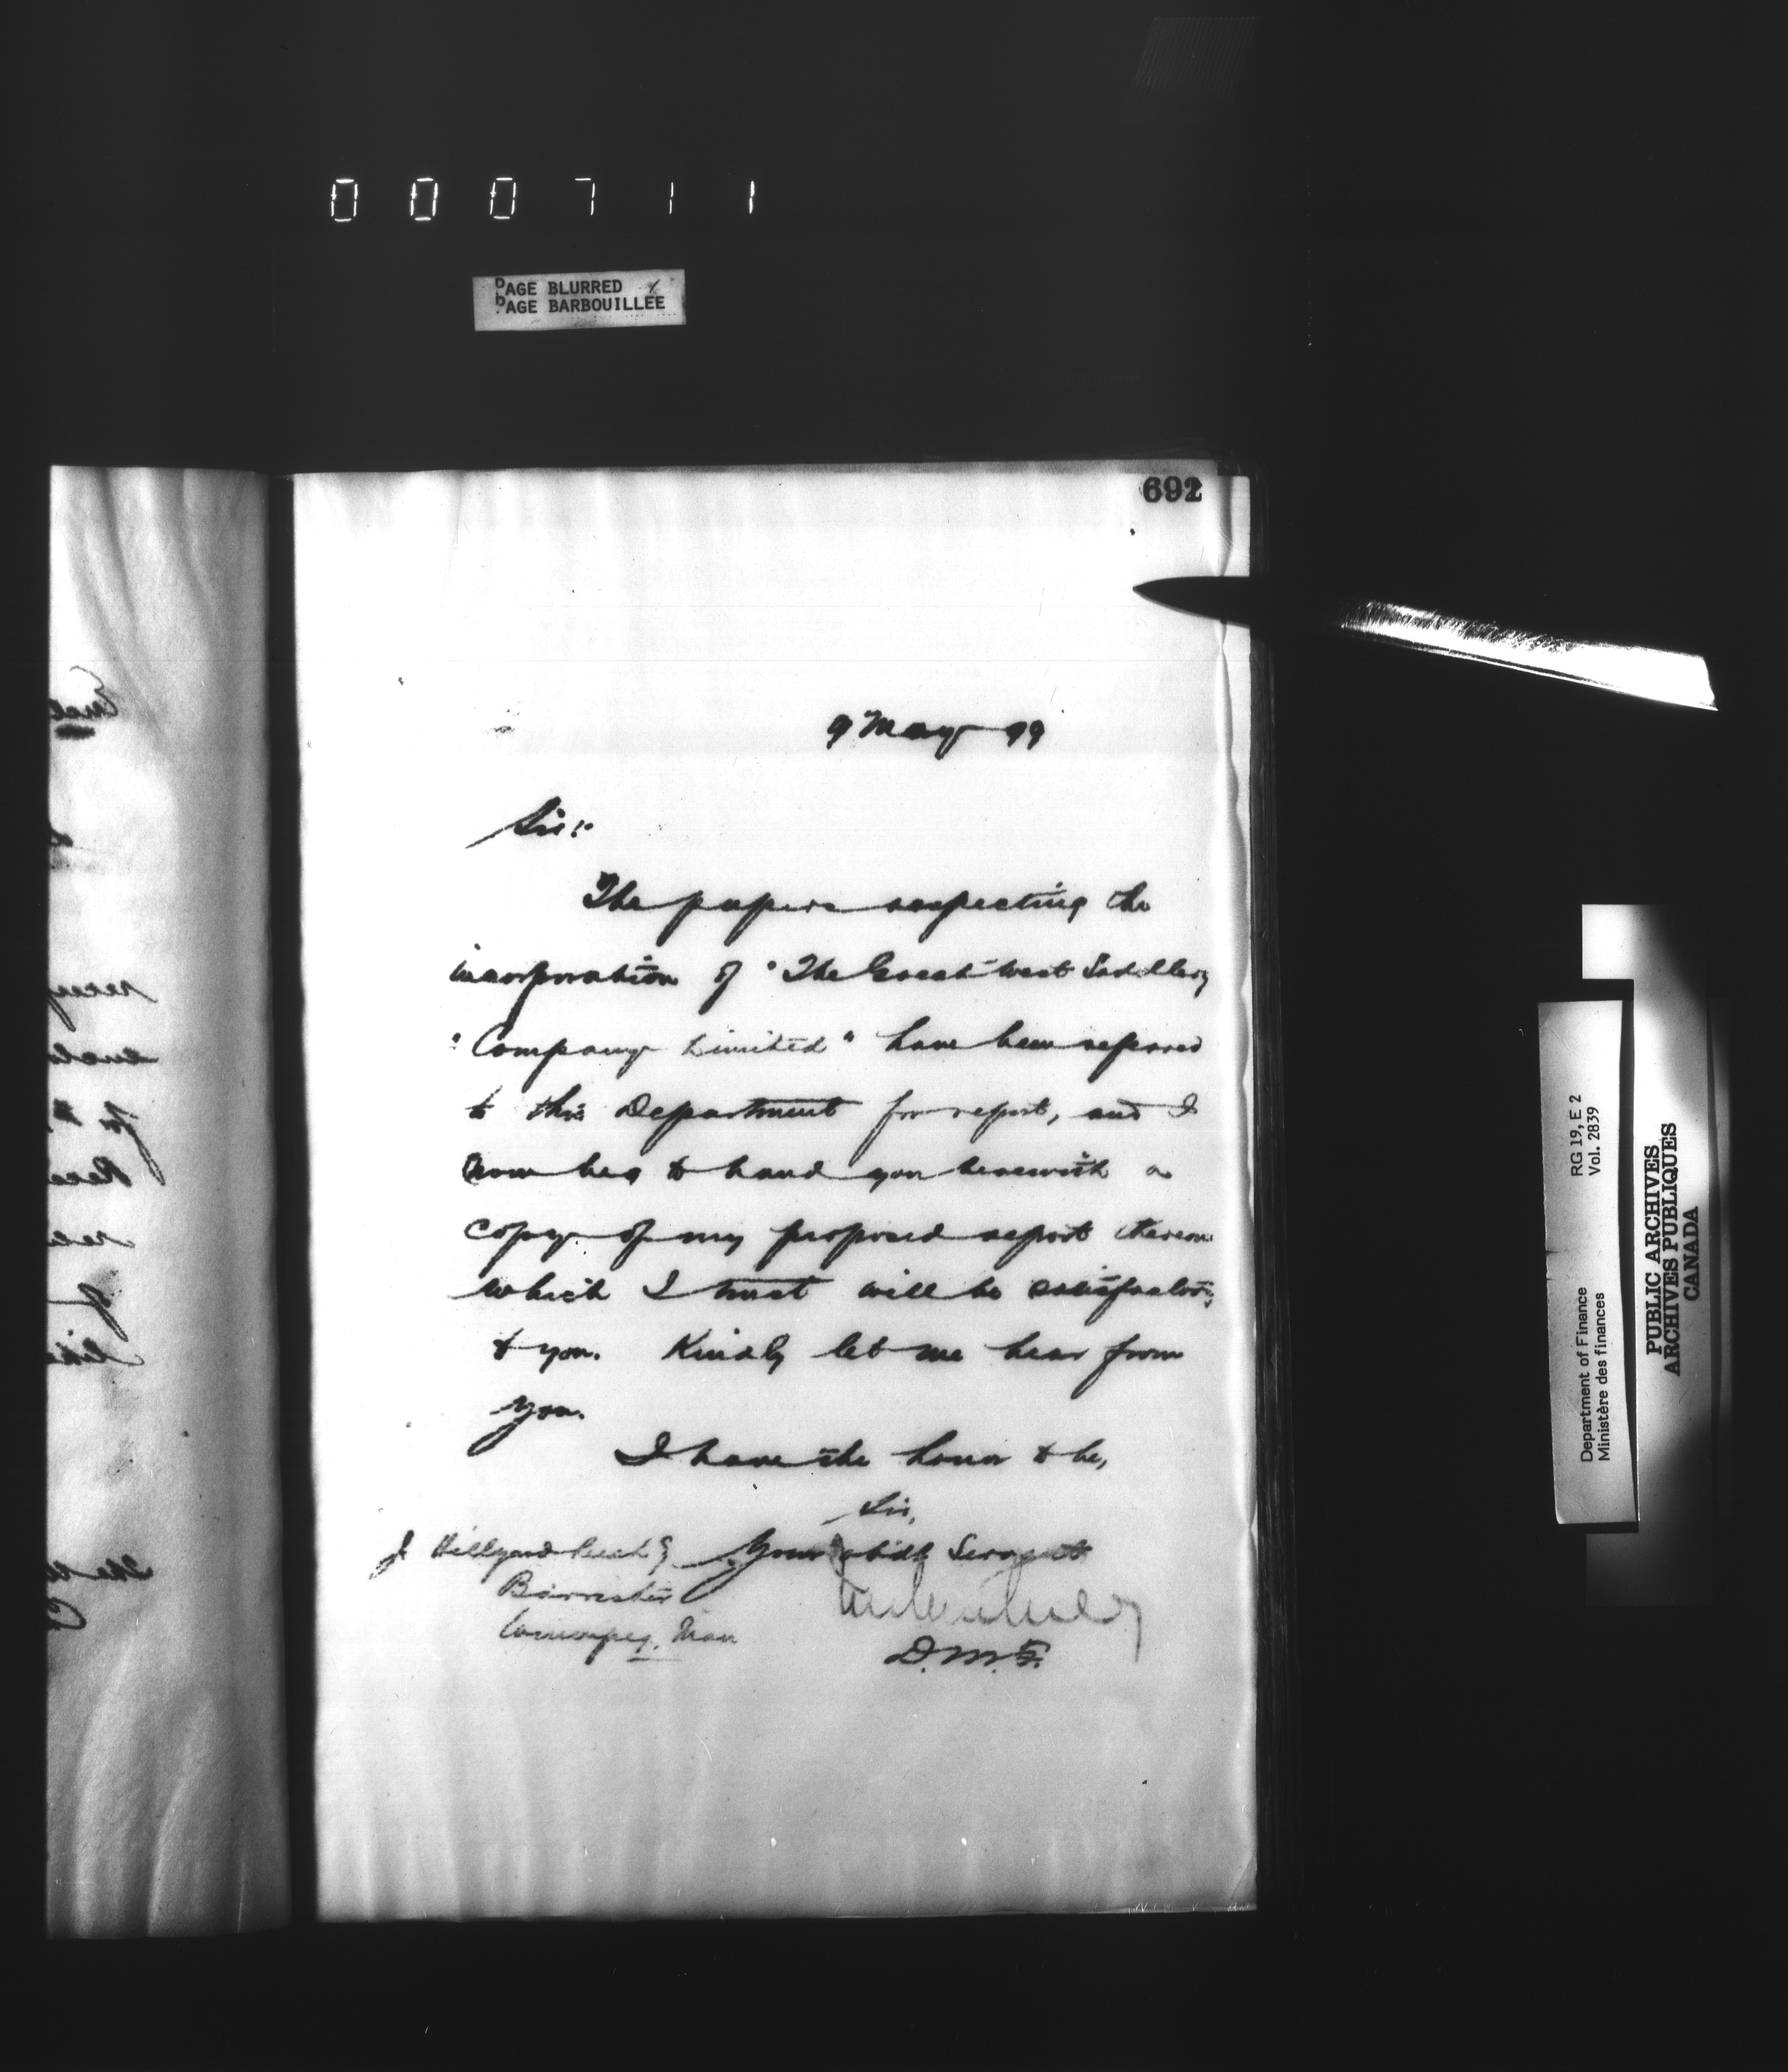 000711
PAGE BLURRED
PAGE BARBOUILLÉE
692
9 May 99
Sir:
The papers respecting the
incorporation of "The Great West Saddlery
"Company Limited" have been referred
to this Department for report, and I
now beg to hand you herewith a
copy of my proposed report thereon
which I trust will be satisfactory
to you. Kindly let me hear from
you.
I have the honor to be,
Sir,
Your obdt Servant
D.M.F.
J Hillyard Leech
Barrister
Winnipeg, Man
RG 19, E 2
Vol. 2839
Department of Finance
Ministère des finances
PUBLIC ARCHIVES
ARCHIVES PUBLIQUES
CANADA